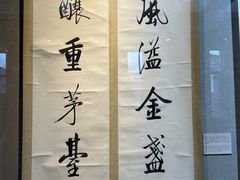 風溢金盞
釀重茅臺